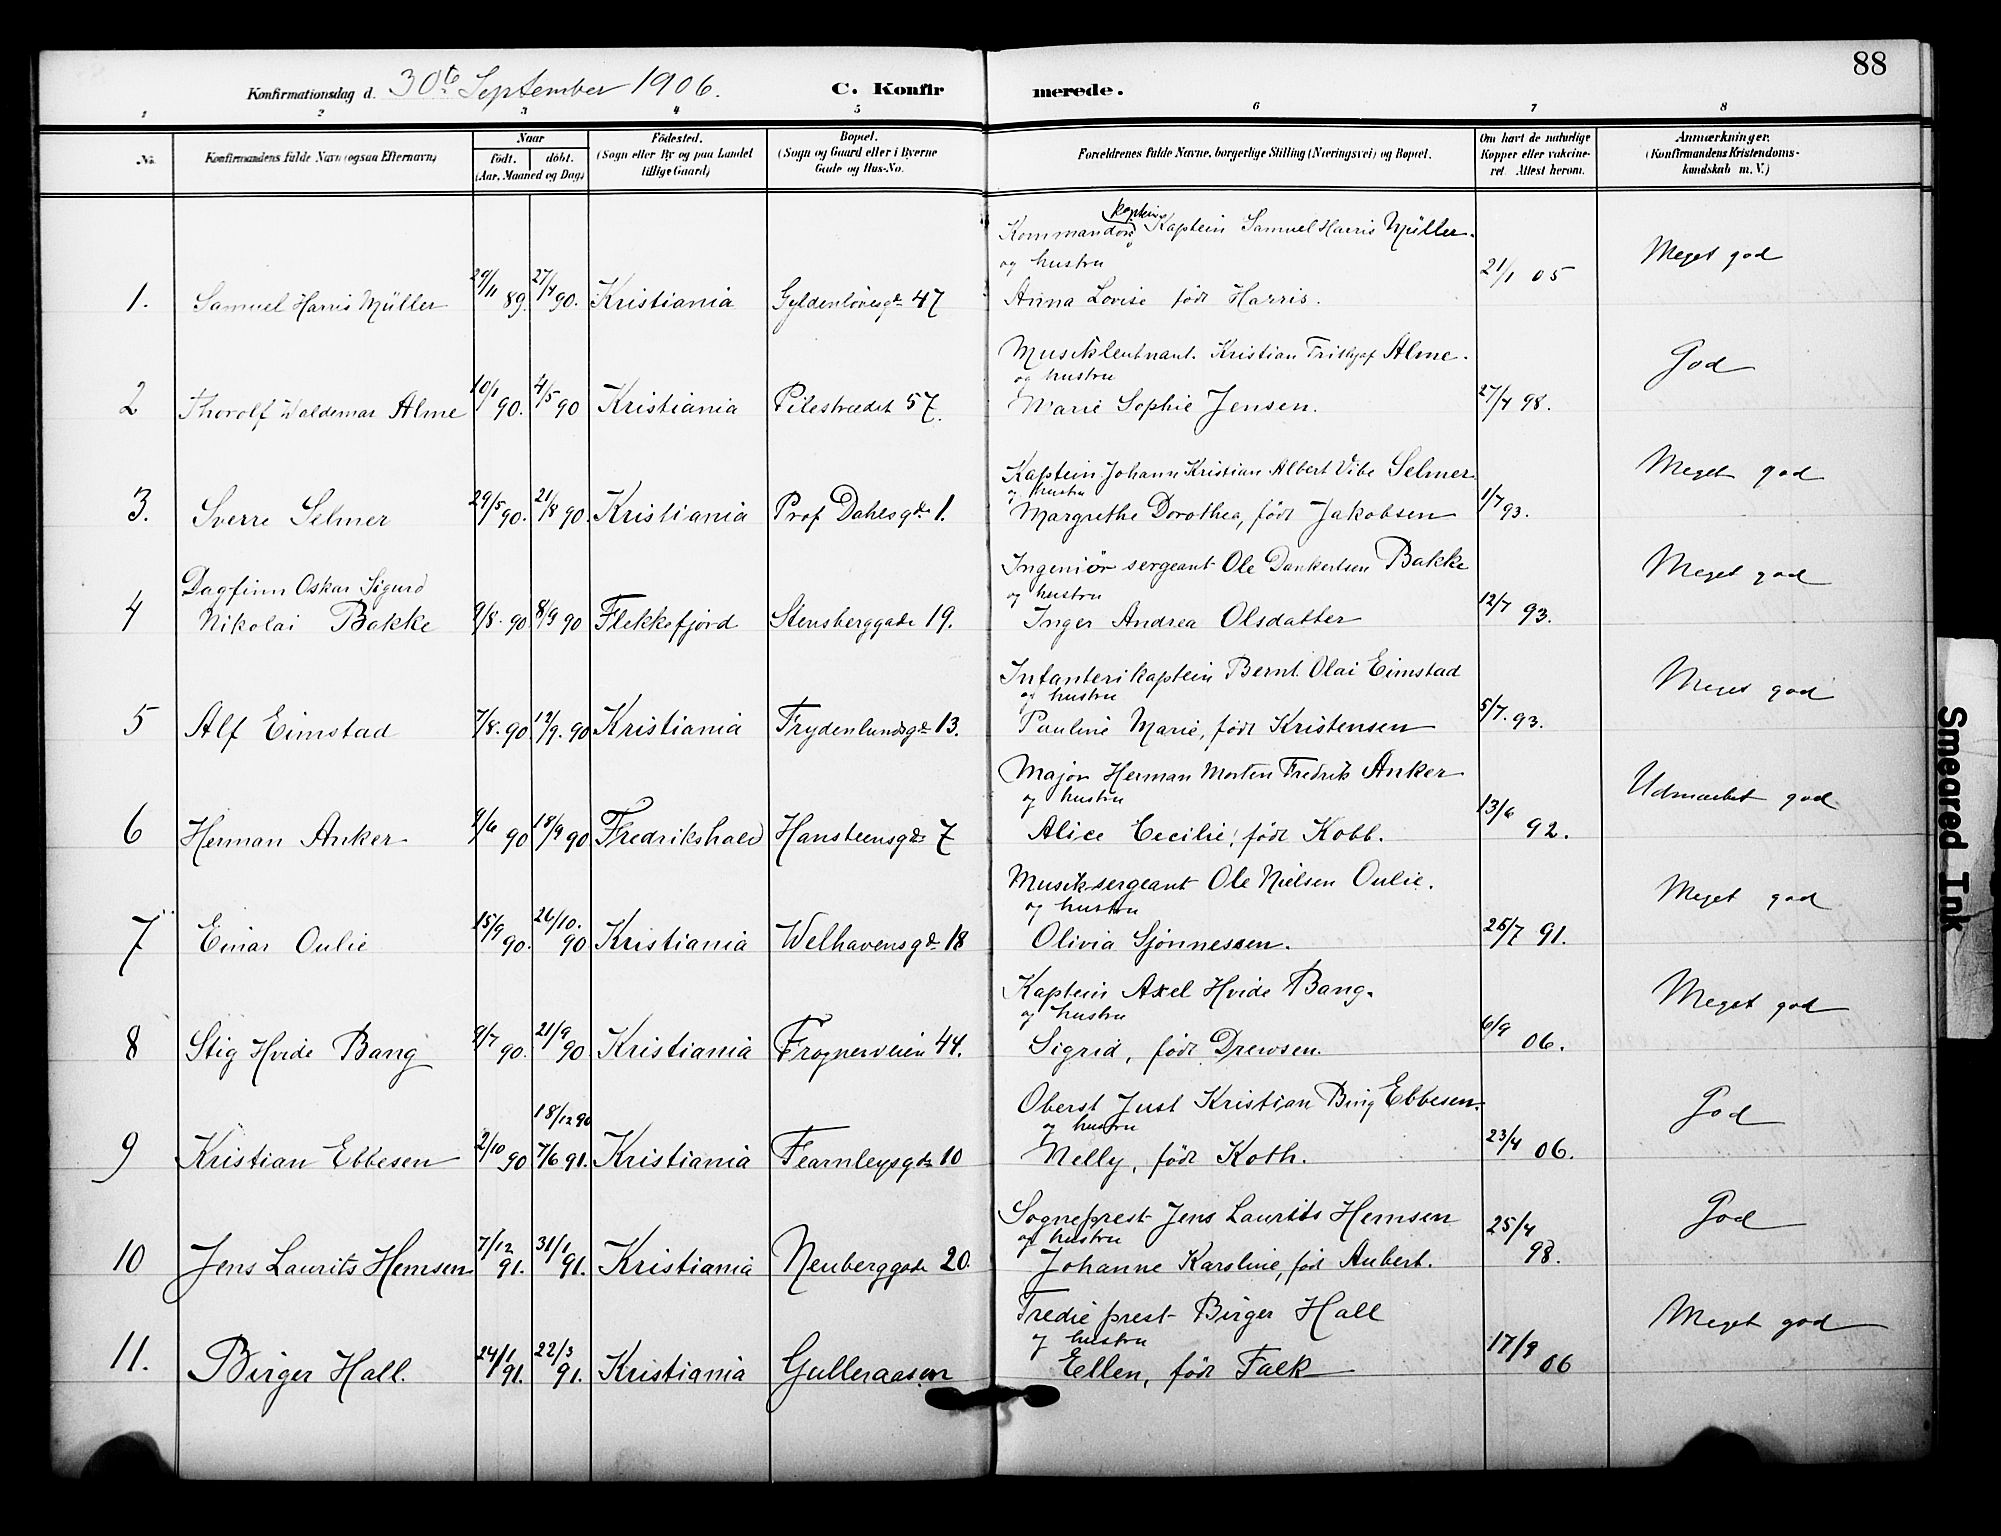 88
Konfirmationsdag d. 30te September 1906. C. Konfirmerede.
1 2 3 4 5 6 7 8
No. Konfirmandens fulde Navn (ogsaa Efternavn) Naar födt. döbt. (Aar, Maaned og Dag) Födested. (Sogn eller By og paa Landet tillige Gaard) Bopæl. (Sogn og Gaard eller i Byerne Gade og Hus-No. Forældrenes fulde Navne, borgerlige Stilling (Næringsvei) og Bopæl. Om havt de naturlige Kopper eller vakcineret. Attest herom. Anmærkninger. (Konfirmandens Kristendomskundskab m. V.)
Kommandörkaptein Kaptein Samuel Harris Müller.
og hustru
1. Samuel Harris Müller 29/11 89. 27/4 90. Kristiania Gyldenlövesgd. 47 Anna Lovise født Harris. 21/1 05 Meget god
Musiklöutnant. Kristian Frithjof Alme.
og hustru
2 Thorolf Waldemar Alme 10/1 90. 4/5 90 Kristiania Pilestrædet 57. Marie Sophie Jensen. 27/4 98. God
Kaptein Johann Kristian Albert Vibe Selmer
og hustru
3. Sverre Selmer 29/5 90. 21/8 90. Kristiania Prof Dahlsgd. 1. Margrethe Dorothea, født Jakobsen 1/7 93. Meget god
Dagfinn Oskar Sigurd
Ingeniör sergeant Ole Dankertsen Bakke
og hustru
4 Nikolai Bakke 9/8. 90 8/9 90 Flekkefjord Stensberggade 19. Inger Andrea Olsdatter 12/7 93. Meget god
Infanterikaptein Bernt Olai Eimstad
og hustru
5 Alf Eimstad 7/8. 90 12/9. 90 Kristiania Frydenlundsgd. 13. Pauline Marie, født Kristensen 5/7. 93. Meget god
Major Herman Morten Fredrik Anker
og hustru
6 Herman Anker 9/6 90 18/9 90 Fredrikshald Hansteensgd. 7 Alice Cecilie, født Kobb. 13/6 92. Udmærket god
Musiksergeant Ole Nielsen Oulie.
og hustru
7 Einar Oulie 15/9 90. 26/10. 90 Kristiania Welhavensgd. 18 Olivia Sjönnessen. 25/7 91. Meget god
Kaptein Axel Hvide Bang.
og hustru
8 Stig Hvide Bang 9/7 90. 21/9 90 Kristiania Frognerveien 44. Sigrid, født Drewsen. 6/9 06. Meget god
Oberst Just Kristian Bing Ebbesen.
og hustru
18/12 90
9 Kristian Ebbesen 2/10 90 7/6 91. Kristiania Fearnleysgd. 10 Nelly, født Koth. 23/4 06. God
Sogneprest Jens Laurits Hemsen
og hustru
10 Jens Laurits Hemsen 7/12 91. 31/1 91. Kristiania Neuberggade 20. Johanne Karoline, född Aubert. 25/4 98. God
Tredie prest Birger Hall
og hustru
11. Birger Hall. 24/1 91. 22/3 91. Kristiania Gulleraasen Ellen, født Falk 17/9 06 Meget god
Smeared Ink